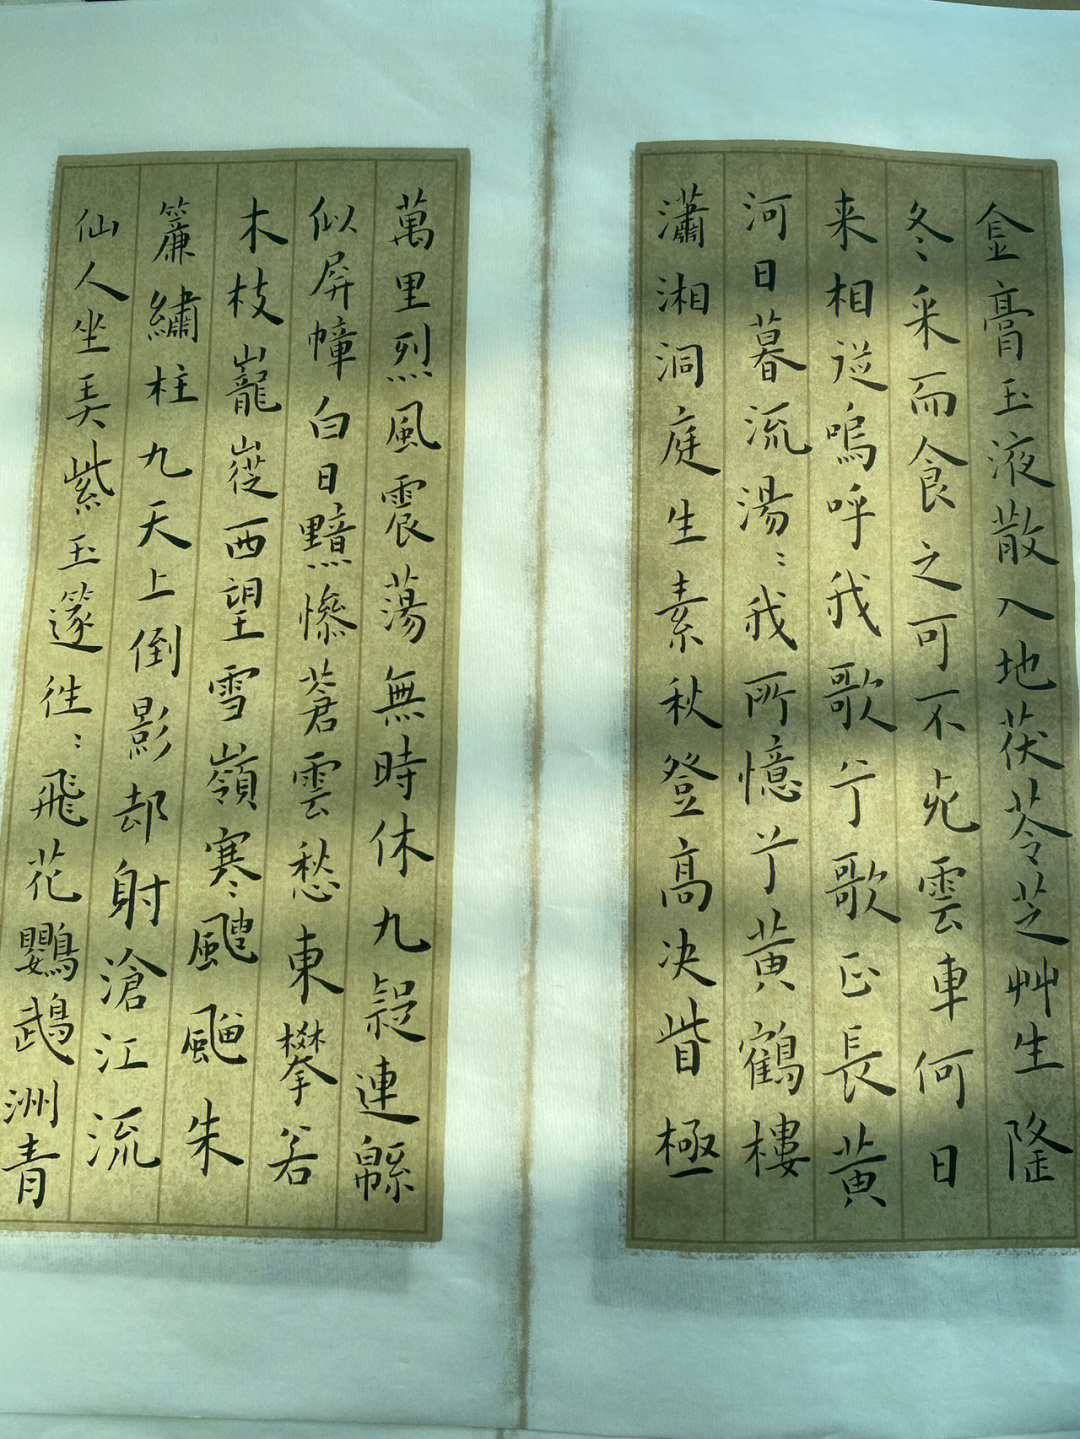 金膏玉液散入地茯苓芝艸生隆
冬采而食之可不死雲車何日
来相從嗚呼我歌兮歌正長黃
河日暮流湯〻我所憶兮黃鶴樓
瀟湘洞庭生素秋登高決眥極
萬里烈風震蕩無時休九疑連緜
似屏幛白日黯慘蒼雲愁東攀若
木枝巃嵷西望雪嶺寒〻颼飀朱
簾繡柱九天上倒影却射滄江流
仙人坐弄紫玉篴往〻飛花鸚鵡洲青